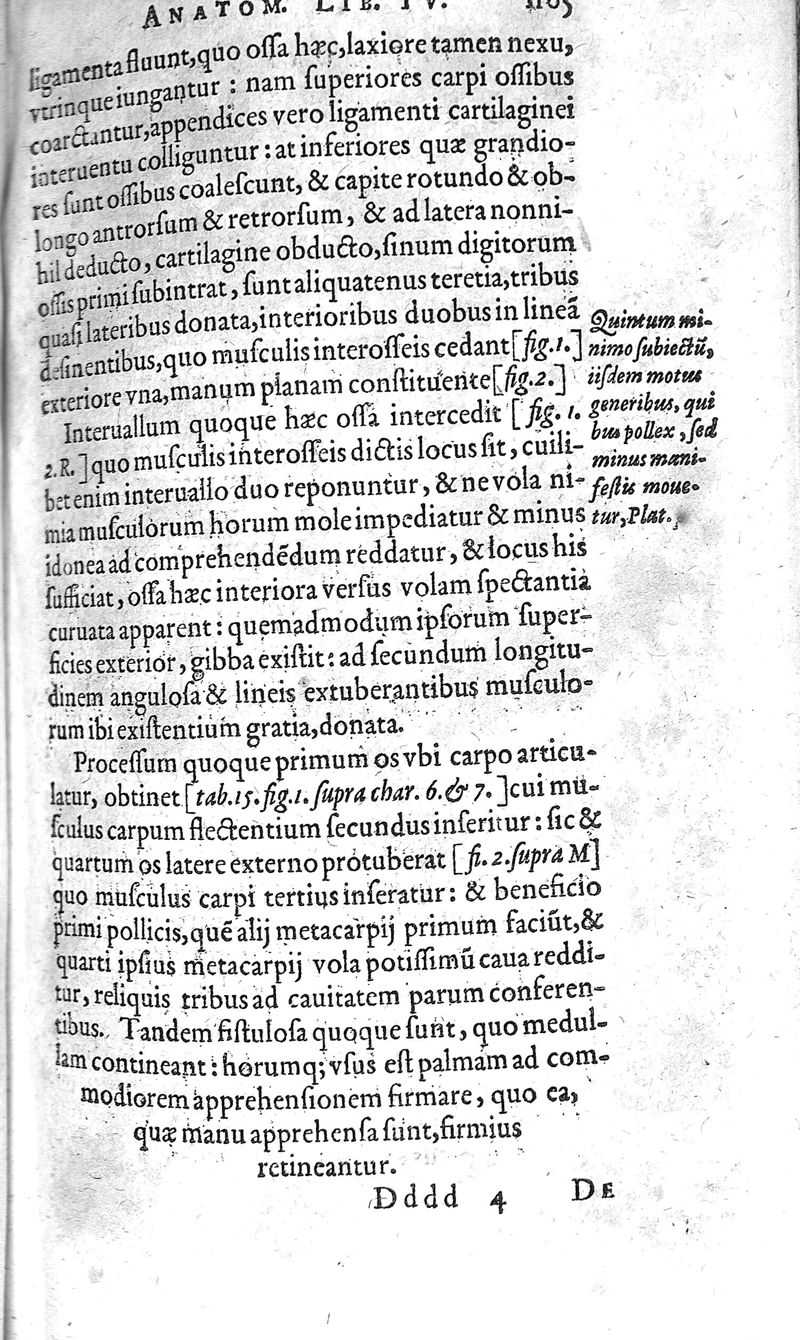 ANATOM. LIB. IV. 1105
ligamenta fluunt, quo oſſa hæc, laxiore tamen nexu,
vtrinque iungantur : nam ſuperiores carpi oſſibus
coarctantur, appendices vero ligamenti cartilaginei
interuentu colliguntur : at inferiores quæ grandio-
res ſunt oſſibus coaleſcunt, & capite rotundo & ob-
longo antrorſum & retrorſum, & ad latera nonni-
hil deducto, cartilagine obducto, ſinum digitorum
oſſis primi ſubintrat, ſunt aliquatenus teretia, tribus
quaſi lateribus donata, interioribus duobus in lineā
deſinentibus, quo muſculis interoſſeis cedant [fig. 1.]
exteriore vna, manum planam conſtituente [fig. 2.]
Interuallum quoque hæc oſſa intercedit [fig. 1.
2. R.] quo muſculis interoſſeis dictis locus ſit, cuili-
bet enim interuallo duo reponuntur, & ne vola ni-
mia muſculorum horum mole impediatur & minus
idonea ad comprehendēdum reddatur, & locus his
ſufficiat, oſſa hæc interiora verſus volam ſpectantia
curuata apparent : quemadmodum ipſorum ſuper-
ficies exterior, gibba exiſtit : ad ſecundum longitu-
dinem anguloſa & lineis extuberantibus muſculo-
rum ibi exiſtentium gratia, donata.
Proceſſum quoque primum os vbi carpo articu-
latur, obtinet [tab. 15. fig. 1. ſupra char. 6. & 7.] cui mu-
ſculus carpum flectentium ſecundus inſeritur : ſic &
quartum os latere externo protuberat [fi. 2. ſupra M]
quo muſculus carpi tertius inſeratur : & beneficio
primi pollicis, quē alij metacarpij primum faciūt, &
quarti ipſius metacarpij vola potiſſimū caua reddi-
tur, reliquis tribus ad cauitatem parum conferen-
tibus. Tandem fiſtuloſa quoque ſunt, quo medul-
lam contineant : horumq; vſus eſt palmam ad com-
modiorem apprehenſionem firmare, quo ea,
quæ manu apprehenſa ſunt, firmius
retineantur.
Dddd 4 DE
Quintum mi-
nimo ſubiectū,
iiſdem motus
generibus, qui
bus pollex, ſed
minus mani-
feſtis moue-
tur, Plat.